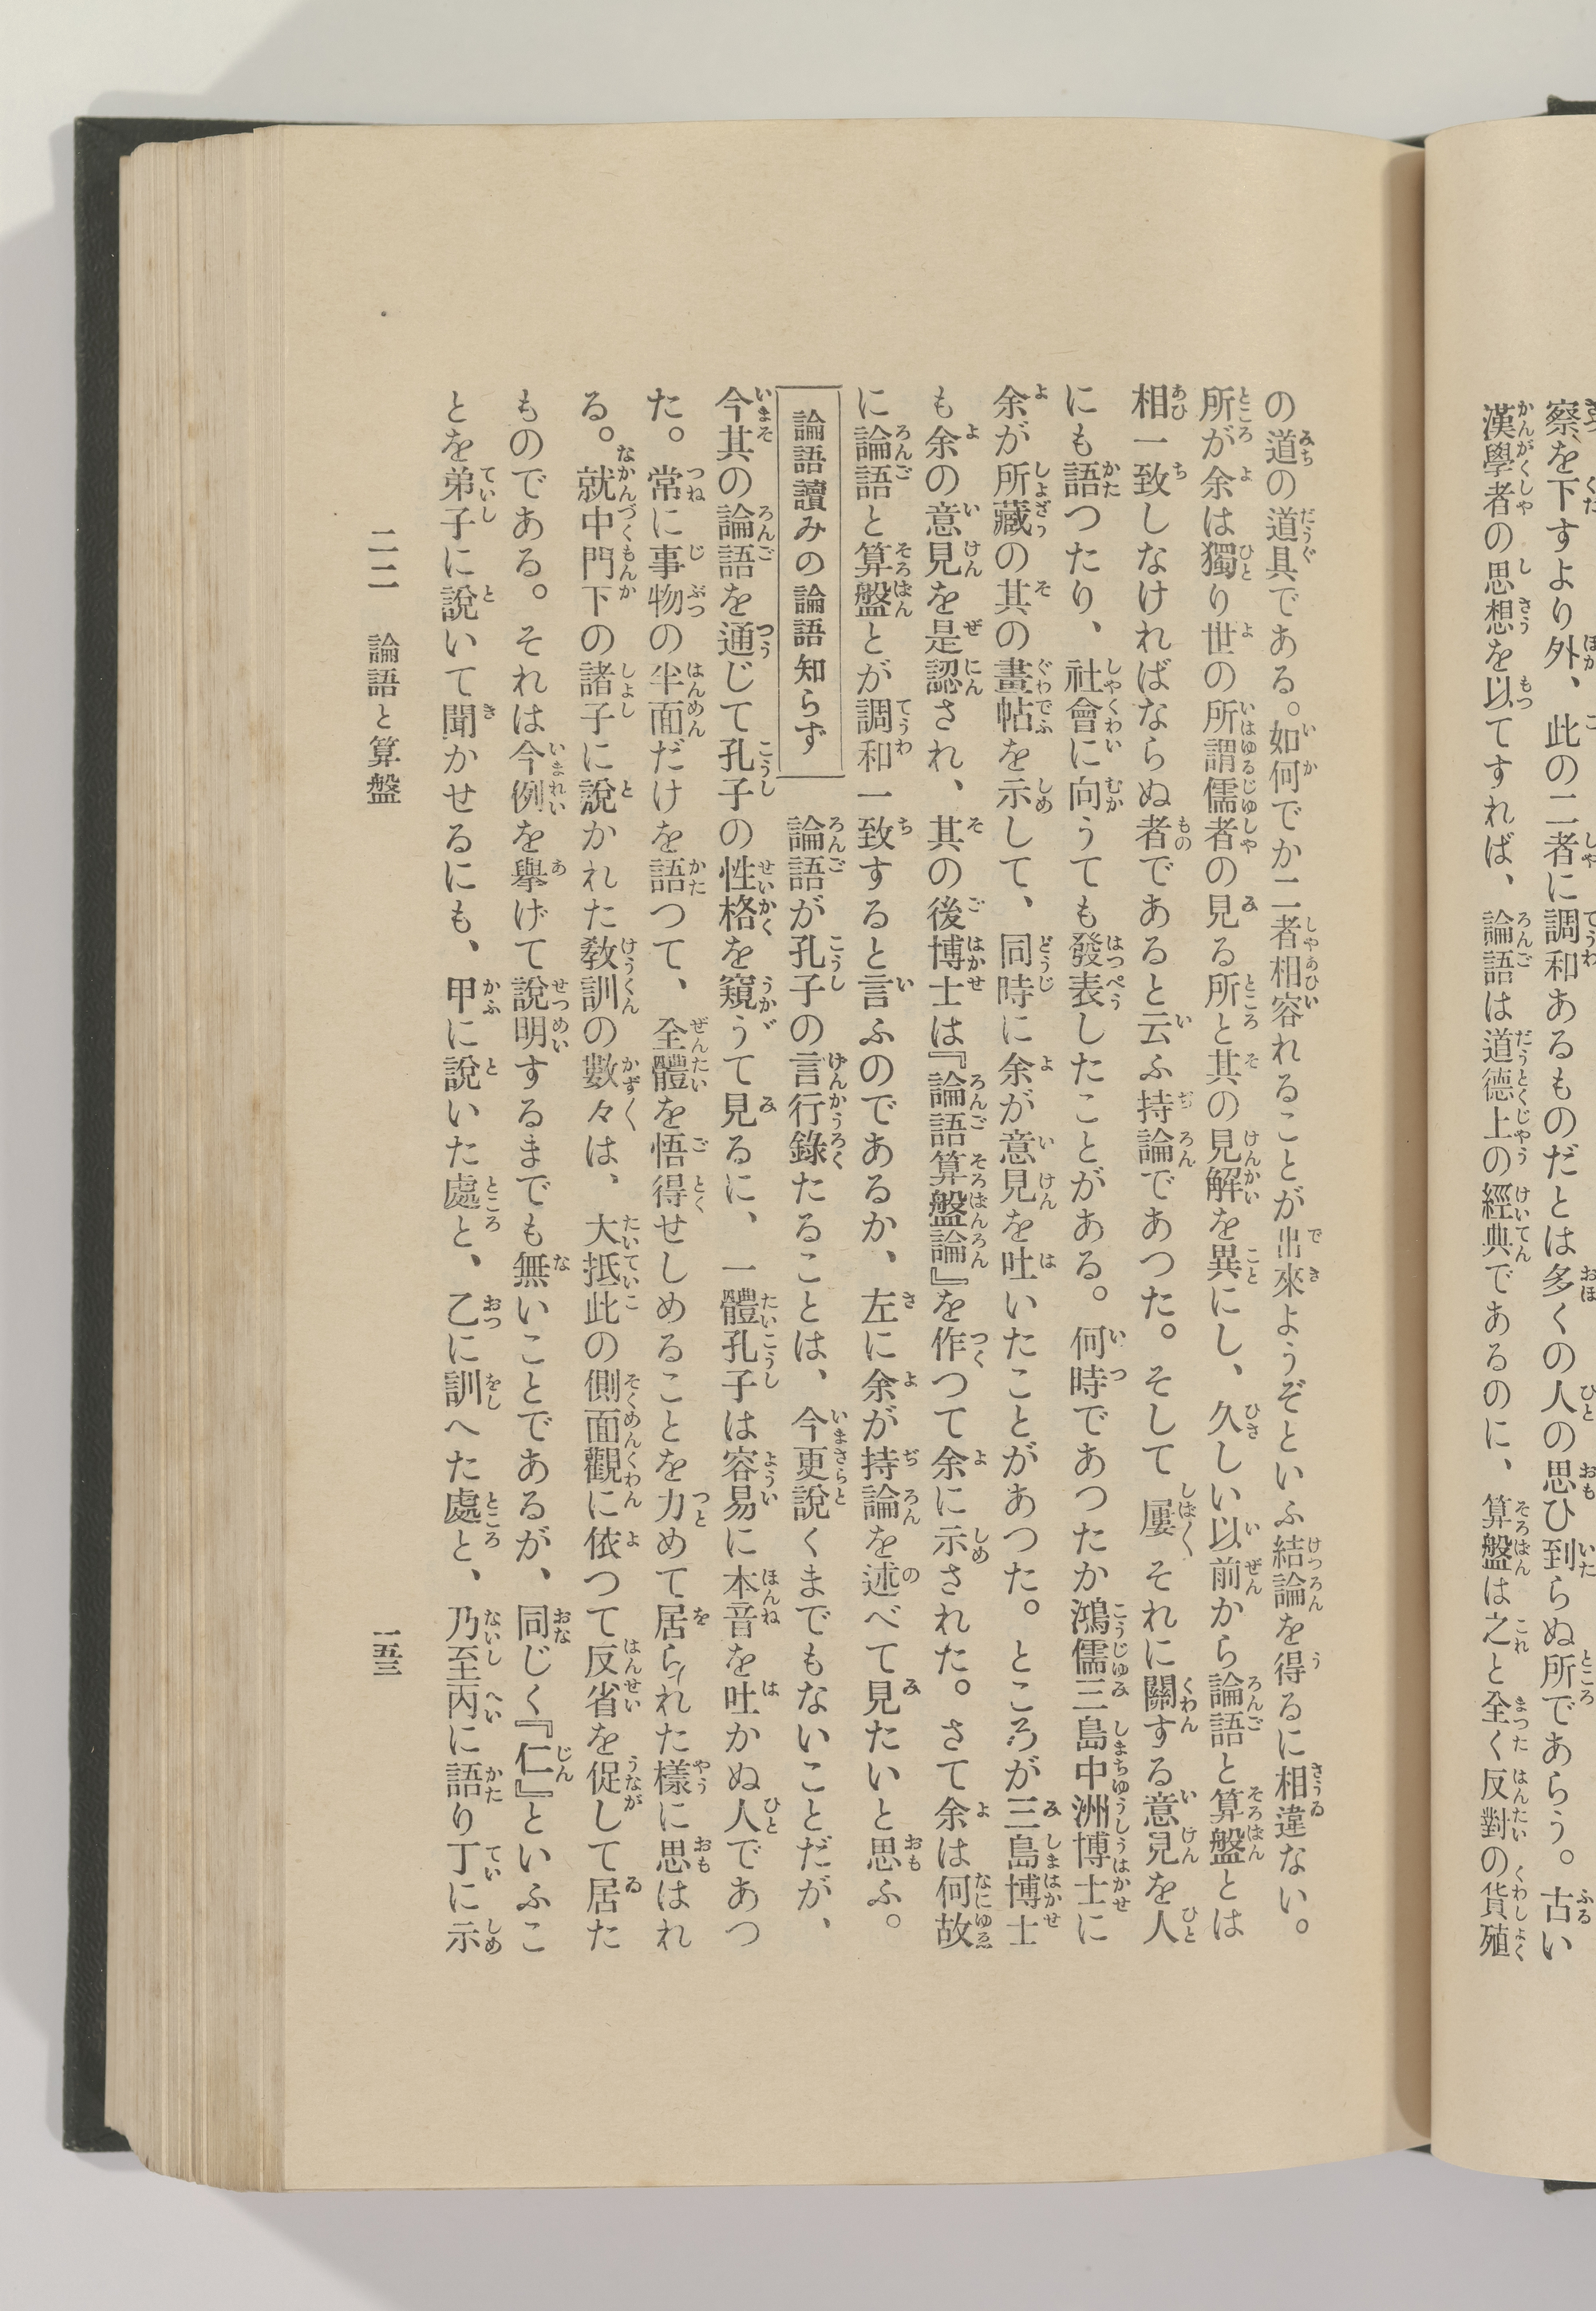 察を下すより外、此の二者に調和あるものだとは多くの人の思ひ到らぬ所であらう。古い
漢學者の思想を以てすれば、論語は道德上の經典であるのに、算盤は之と全く反對の貨殖
の道の道具である。如何でか二者相容れることが出來ようぞといふ結論を得るに相違ない。
所が余は獨り世の所謂儒者の見る所と其の見解を異にし、久しい以前から論語と算盤とは
相一致しなければならぬ者であると云ふ持論であつた。そして屢〻それに關する意見を人
にも語つたり、社會に向うても發表したことがある。何時であつたか鴻儒三島中洲博士に
余が所藏の其の畫帖を示して、同時に余が意見を吐いたことがあつた。ところが三島博士
も余の意見を是認され、其の後博士は『論語算盤論』を作つて余に示された。さて余は何故
に論語と算盤とが調和一致すると言ふのであるか、左に余が持論を述べて見たいと思ふ。
論語讀みの論語知らず
論語が孔子の言行錄たることは、今更說くまでもないことだが、
今其の論語を通じて孔子の性格を窺うて見るに、一體孔子は容易に本音を吐かぬ人であつ
た。常に事物の半面だけを語つて、全體を悟得せしめることを力めて居られた樣に思はれ
る。就中門下の諸子に說かれた敎訓の數々は、大抵此の側面觀に依つて反省を促して居た
ものである。それは今例を擧げて說明するまでも無いことであるが、同じく『仁』といふこ
とを弟子に說いて聞かせるにも、甲に說いた處と、乙に訓へた處と、乃至丙に語り丁に示
二二 論語と算盤
一五三